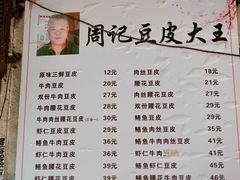 周记豆皮大王
原味三鲜豆皮 12元 肉丝豆皮 18元
牛肉豆皮 20元 腰花豆皮 21元
双份牛肉豆皮 30元 双份腰花豆皮 29元
牛肉腰花豆皮 30元 鳝鱼豆皮 26元
牛肉肉丝腰花豆皮 鳝鱼肉丝豆皮 35元
虾仁豆皮 30元 鳝鱼腰花豆皮 35元
鳝鱼牛肉豆皮 30元 鳝鱼肉丝腰花豆皮 41元
虾仁牛肉豆皮 35元 虾仁牛肉 41元
虾仁腰花豆皮 35元 鳝鱼虾仁豆皮 46元
虾仁鳝鱼豆皮 39元 鳝鱼腰花牛肉豆皮 45元